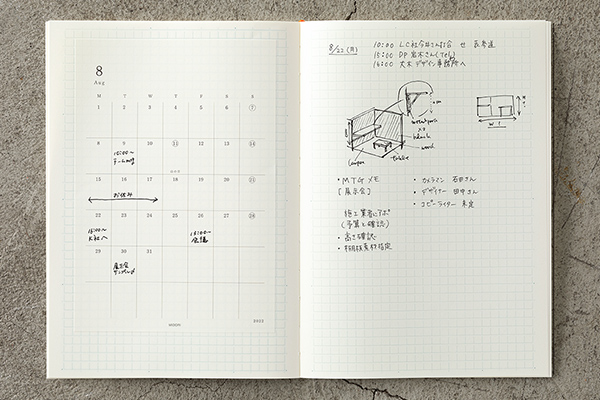 8
Aug
M T W T F S S
1 2 3 4 5 6 7
8 9 10 11 12 13 14
10:00〜
チーム
15 16 17 18 19 20 21
お休み
22 23 24 25 26 27 28
15:00〜
K社へ
15:00〜
会議
29 30 31
展示会
MIDORI
2022
8/22(月)
10:00 LC社今井さん打合せ 表参道
15:00 DP 岩木さん(Tel)
16:00 大木デザイン事務所へ
table
wood
W
H
・MTGメモ
[展示会]
施工業者にアポ
(予算も確認)
・高さ確認
・棚板素材指定
・カメラマン 石田さん
・デザイナー 田中さん
・コピーライター 未定